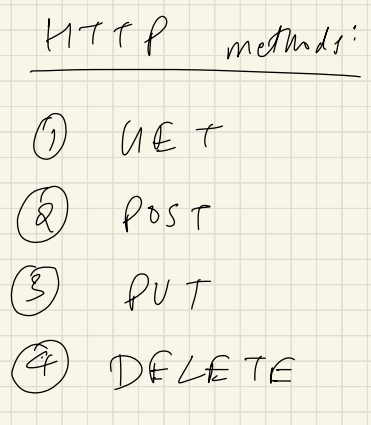 HTTP methods:
① GET
② POST
③ PUT
④ DELETE